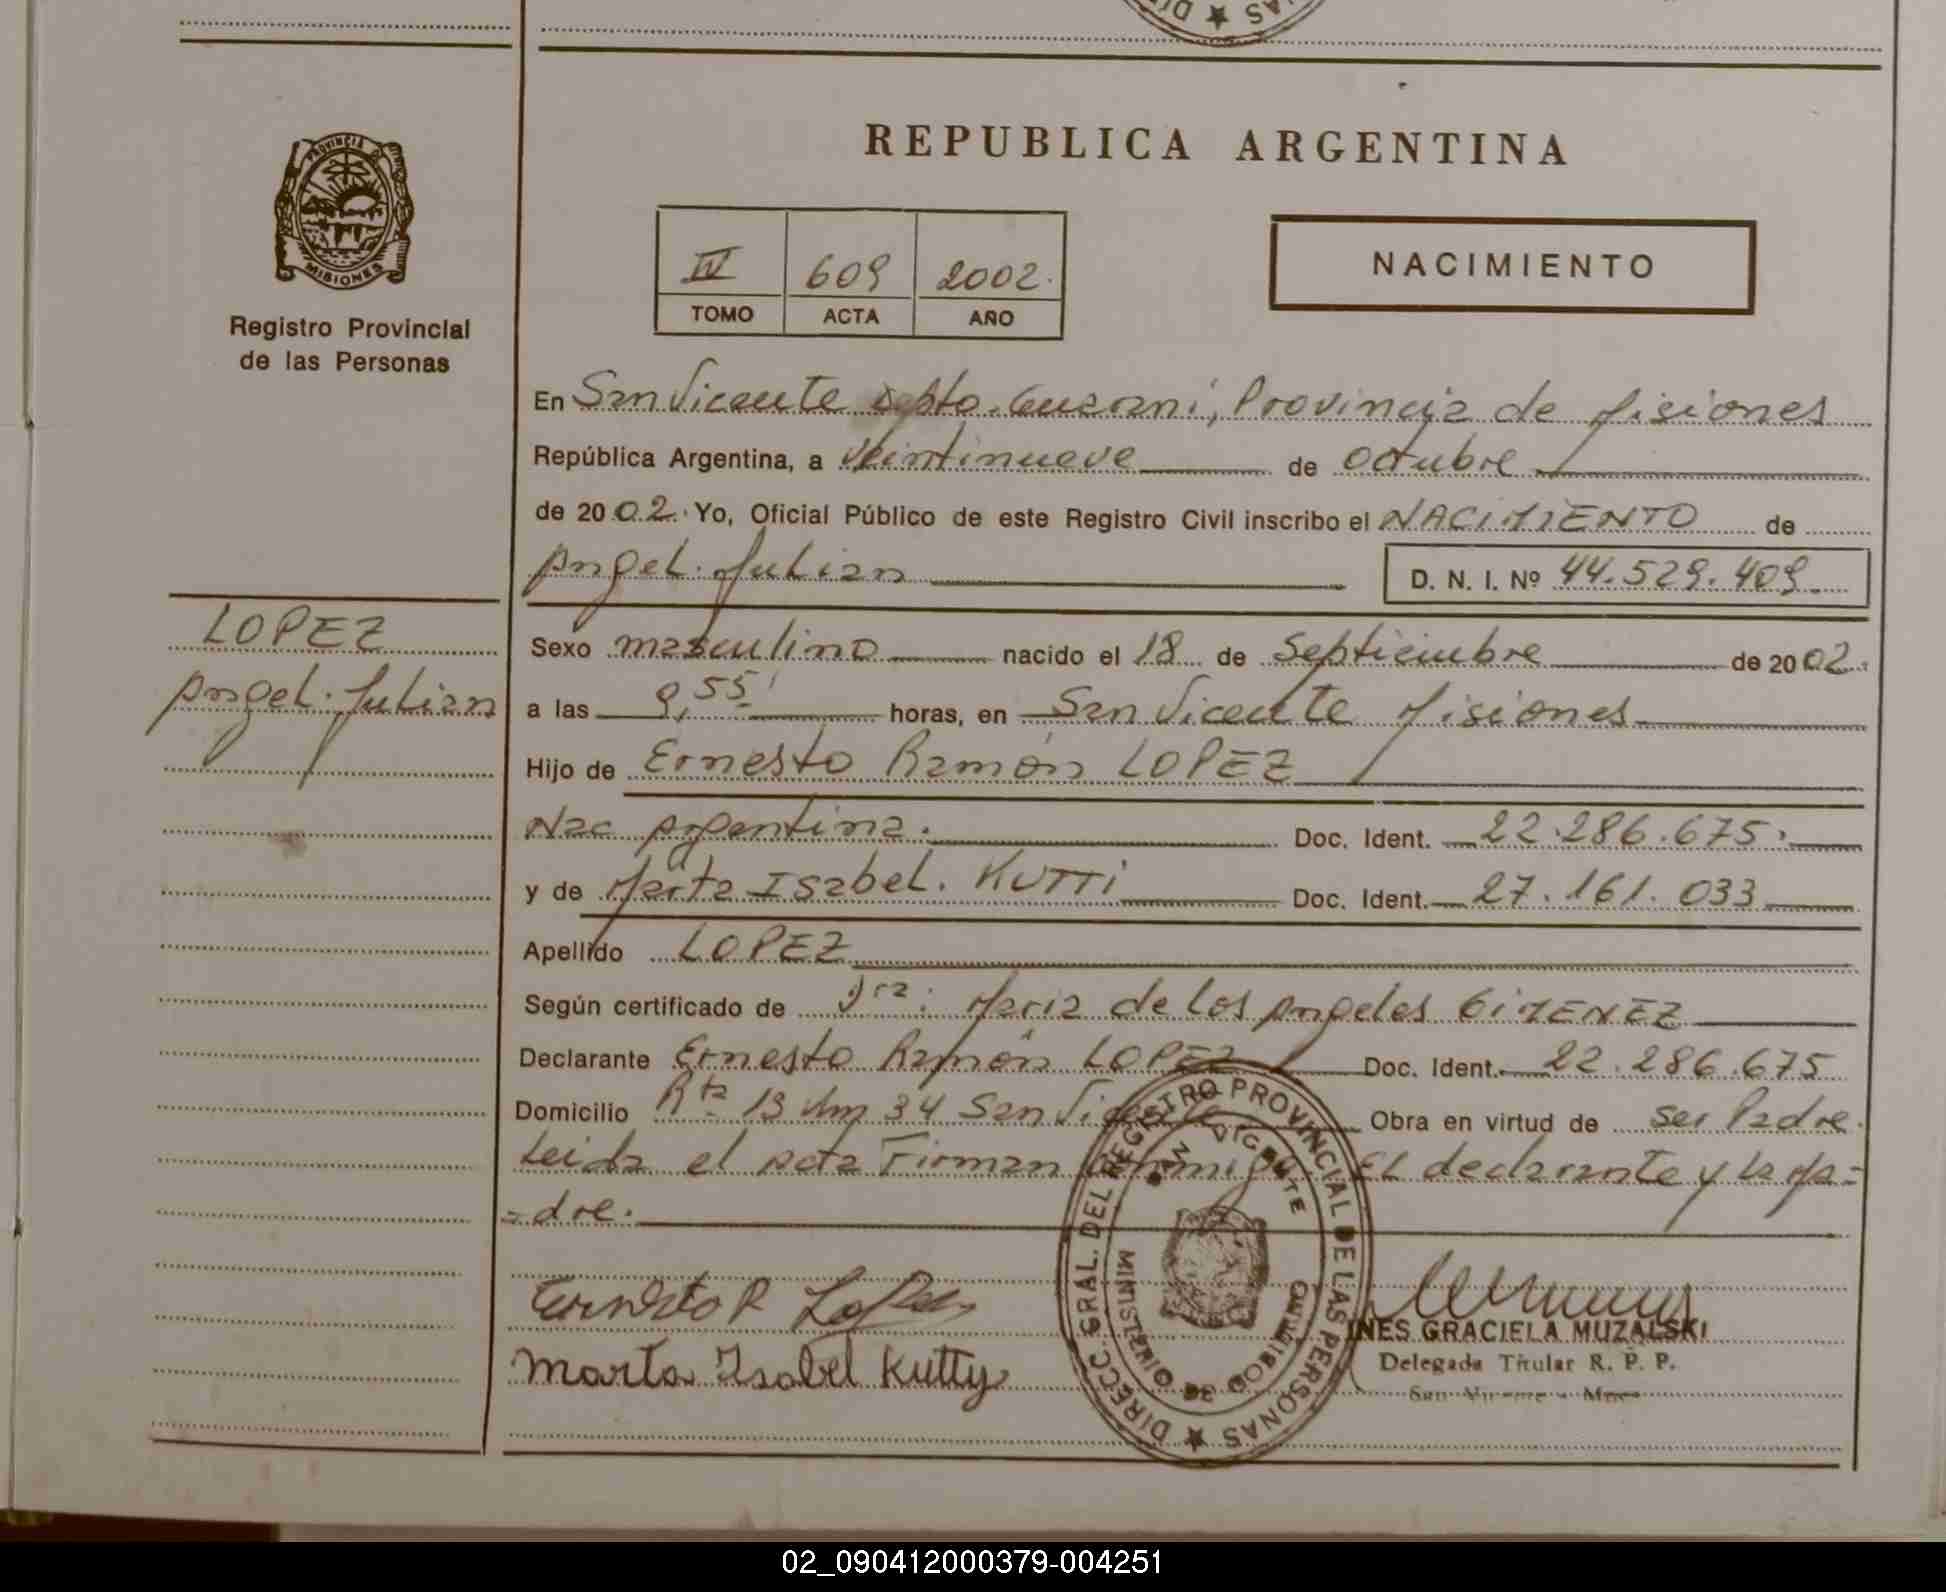 DI ★ SAN
REPUBLICA ARGENTINA
PROVINCIA DE
MISIONES
Registro Provincial
de las Personas
IV 609 2002.
TOMO ACTA AÑO
NACIMIENTO
En San Vicente Depto. Guarani, Provincia de Misiones
República Argentina, a veintinueve de octubre
de 2002. Yo, Oficial Público de este Registro Civil inscribo el NACIMIENTO de
Angel Julian D. N. I. Nº 44.529.409
LOPEZ
Angel Julian
Sexo masculino nacido el 18 de Septiembre de 2002.
a las 9,55' horas, en San Vicente Misiones
Hijo de Ernesto Ramón LOPEZ
Nac Argentina. Doc. Ident. 22.286.675.
y de Marta Isabel. KUTTI Doc. Ident. 27.161.033
Apellido LOPEZ
Según certificado de Dra: Maria de los Angeles GIMENEZ
Declarante Ernesto Ramón LOPEZ Doc. Ident. 22.286.675
Domicilio Rta 13 Km 34 San Vicente Obra en virtud de ser Padre.
Leida el acta Firman conmigo El declarante y la Ma=
=dre.
Ernesto R Lopez
Marta Isabel Kutty
DIRECC. GRAL. DEL REGISTRO PROVINCIAL DE LAS PERSONAS ★
MINISTERIO DE GOBIERNO
INES GRACIELA MUZALSKI
Delegada Titular R. P. P.
San Vicente - Mnes
02_090412000379-004251